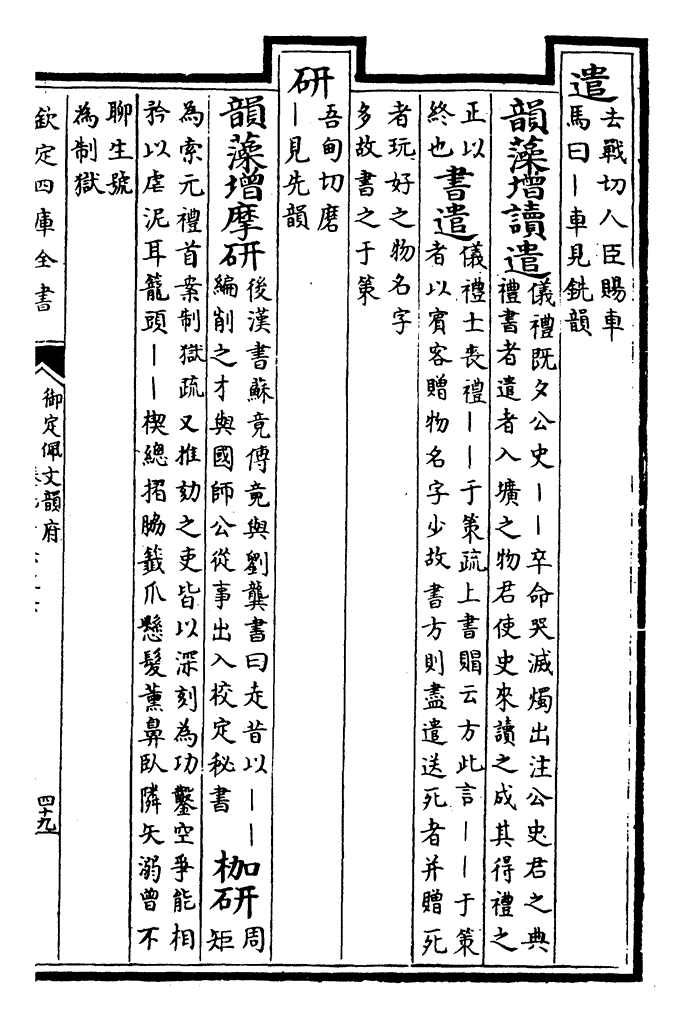 遣
去戰切人臣賜車
馬曰丨車見銑韻
韻藻增讀遣
儀禮既夕公史丨丨卒命哭滅燭出注公史君之典
禮書者遣者入壙之物君使史來讀之成其得禮之
正以
終也
書遣
儀禮士喪禮丨丨于策疏上書賵云方此言丨丨于策
者以賓客贈物名字少故書方則盡遣送死者并贈死
者玩好之物名字
多故書之于策
研
吾甸切磨
丨見先韻
韻藻增摩研
後漢書蘇竟傳竟與劉龔書曰走昔以丨丨
編削之才與國師公從事出入校定秘書
枷研
周
矩
為索元禮首案制獄疏又推劾之吏皆以深刻為功鑿空爭能相
矜以虐泥耳籠頭丨丨楔總摺脇籤爪懸髮薰鼻臥隣矢溺曾不
聊生號
為制獄
欽定四庫全書
御定佩文韻府
四十九